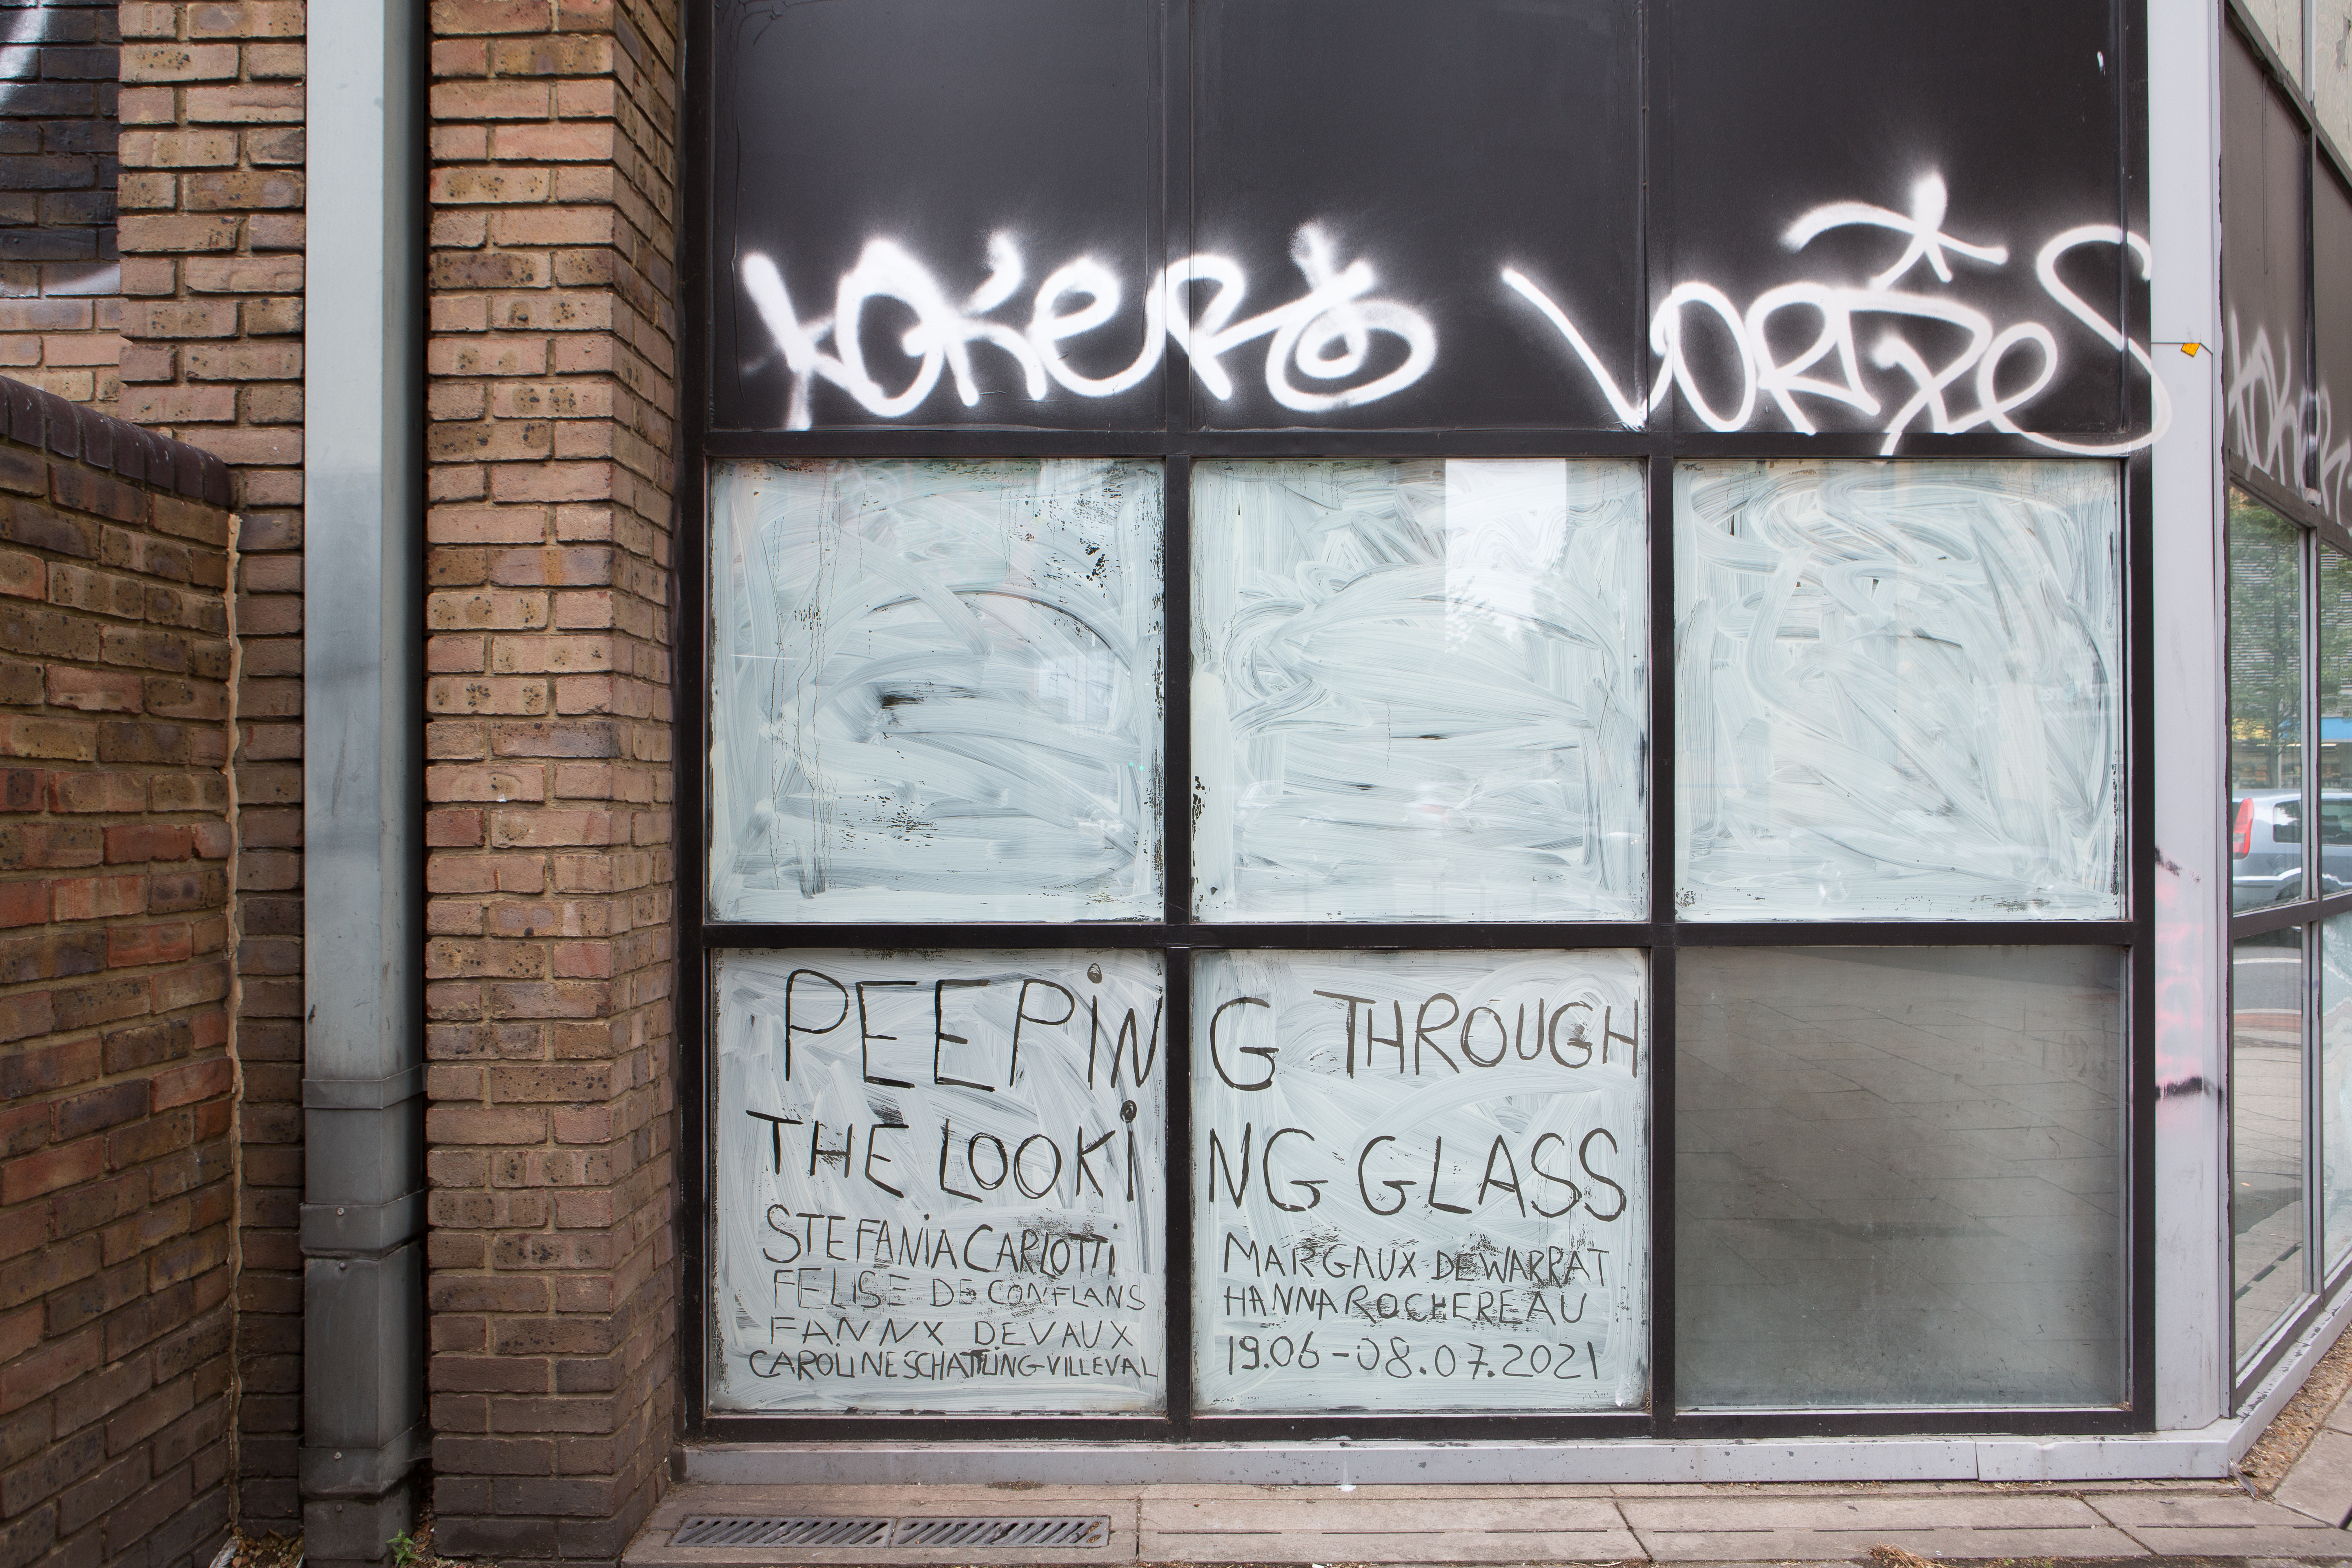 PEEPiNG THROUGH
THE LOOKiNG GLASS
STEFANiA CARLOTTi
FELISE DE CONFLANS
FANNX DEVAUX
CAROLINE SCHATTLiNG-VILLEVAL
MARGAUX DEWARRAT
HANNA ROCHEREAU
19.06-08.07.2021